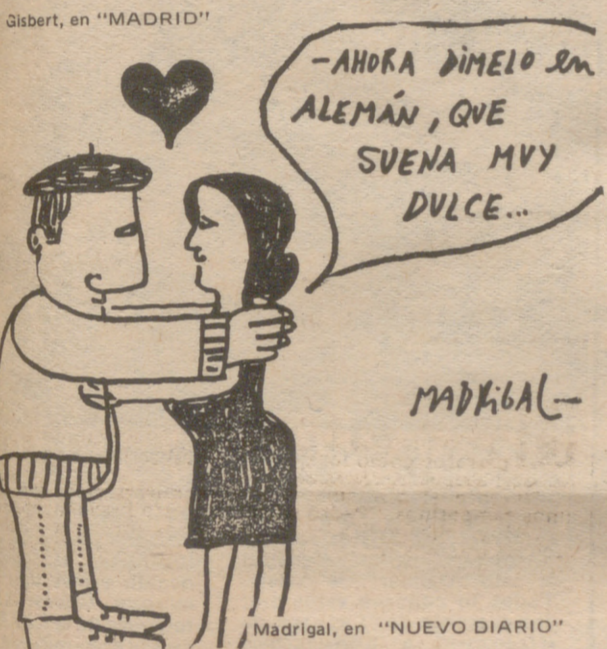 Gisbert, en "MADRID"
-AHORA DIMELO en
ALEMÁN, QUE
SUENA MUY
DULCE...
MADRIGAL-
Madrigal, en "NUEVO DIARIO"